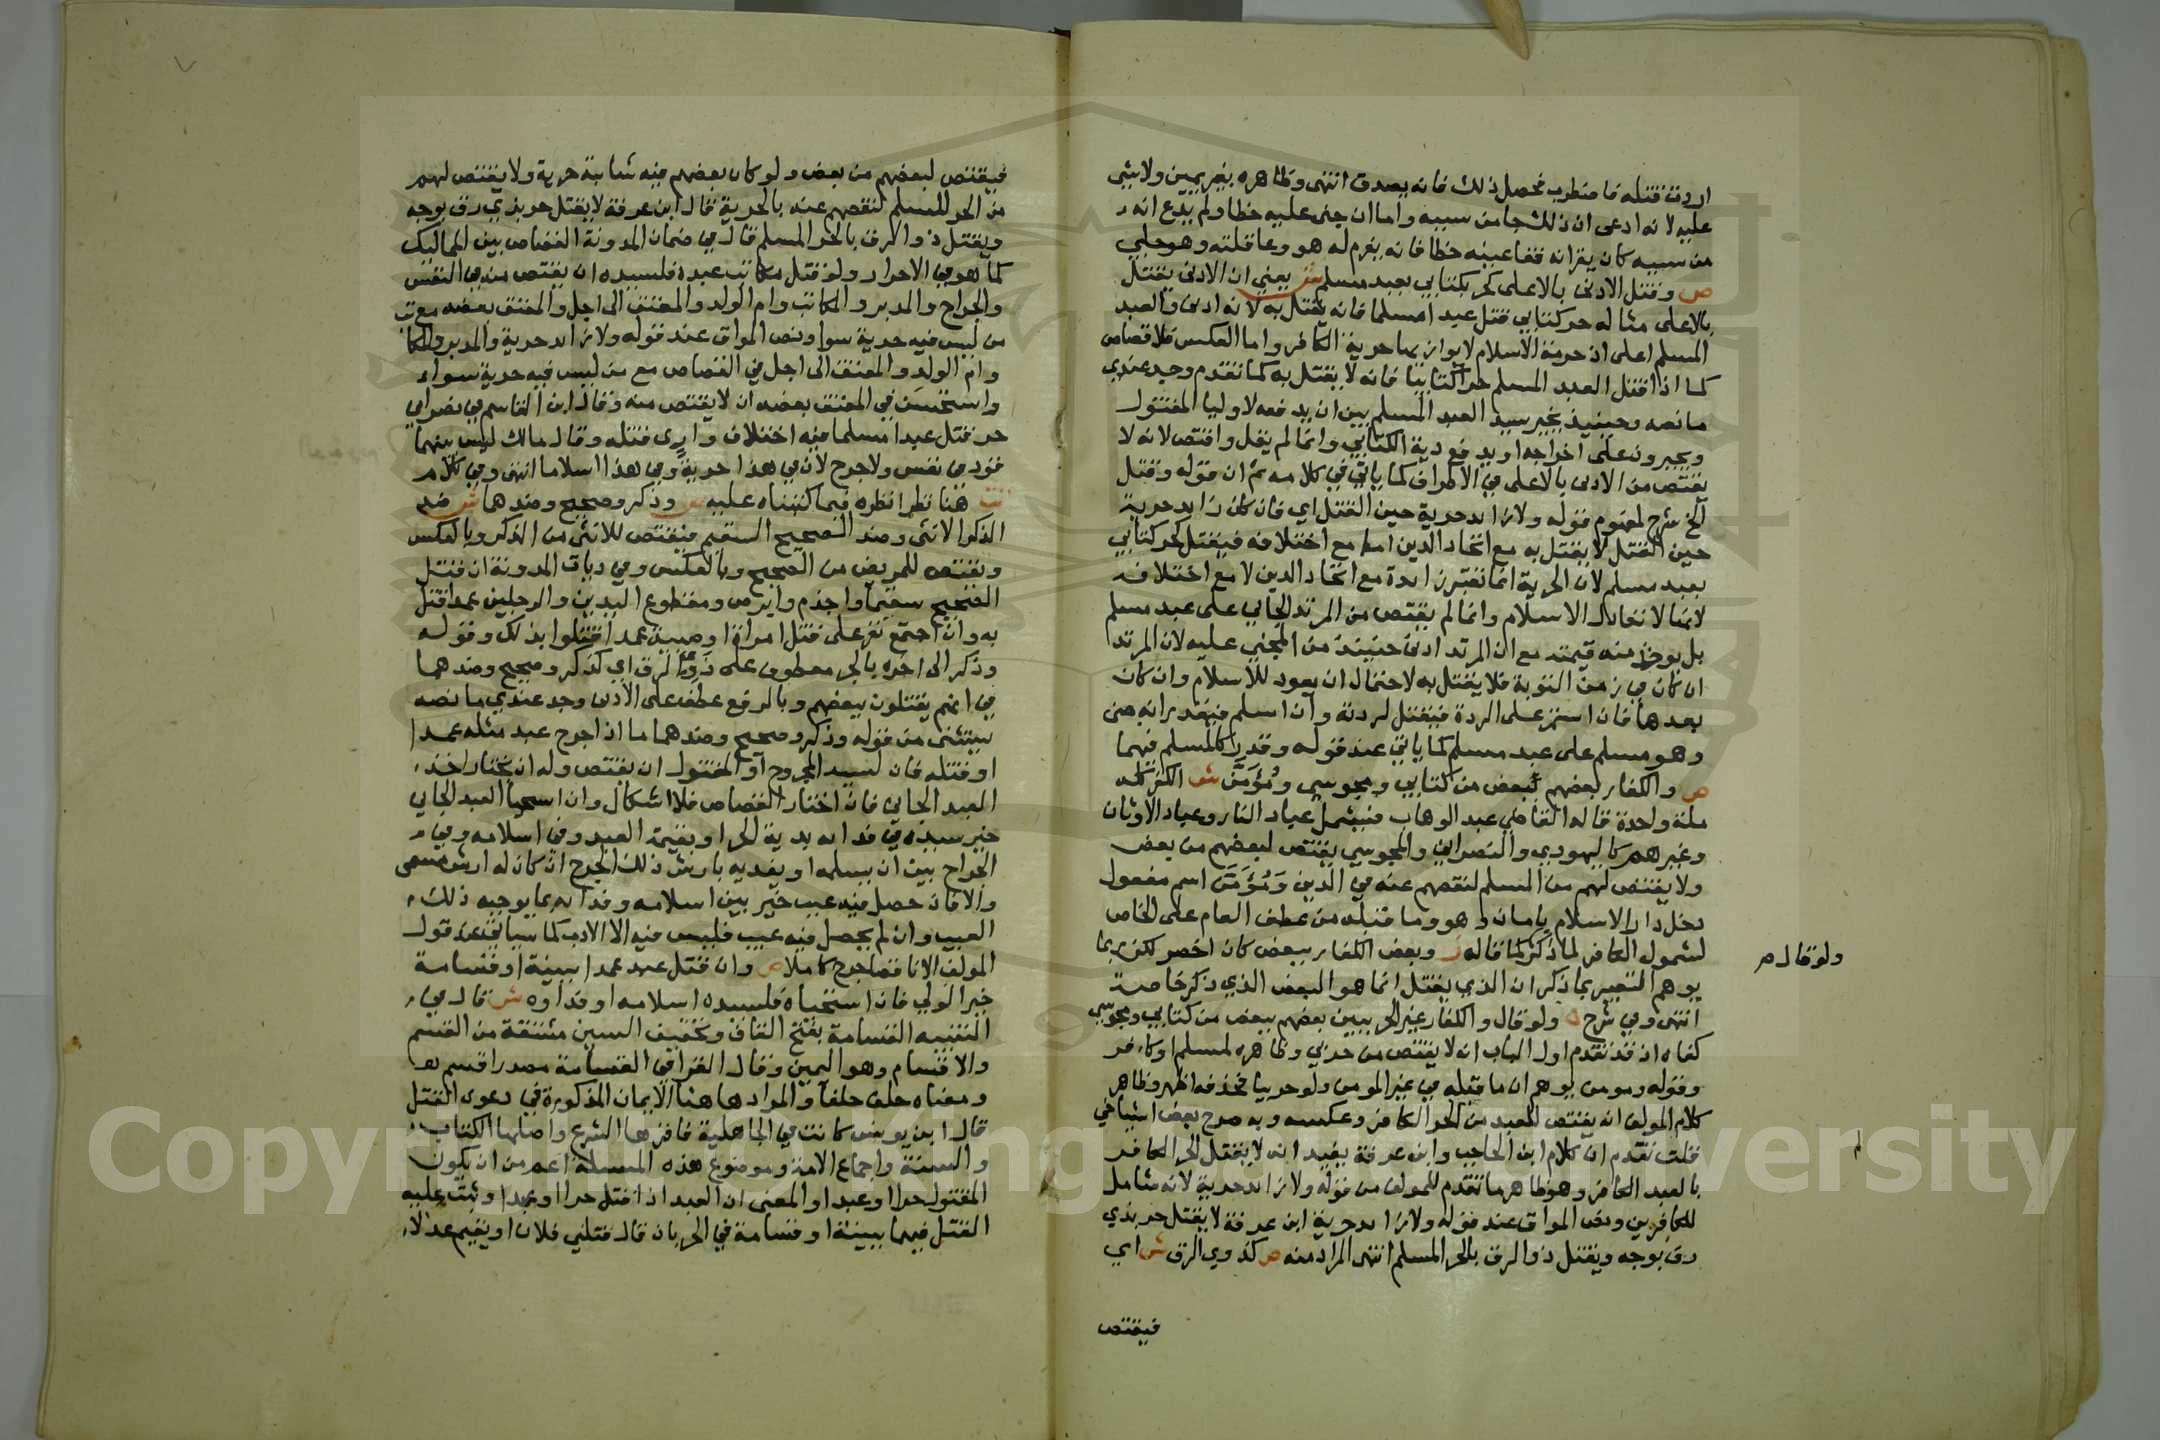 اردت قتله فاضطرب فحصل ذلك فانه يصدق انتهى وظاهره بغير يمين ولا شي
عليه لانه ادعى ان ذلك جا من سببه واما ان جنى عليه خطا ولم يدع انه
من سببه كان يقر انه فقا عينه خطا فانه يغرم له هو وعاقلته وهو جلي
ص وقتل الادنى بالاعلى كحر كتابي بعبد مسلم ش يعني ان الادنى يقتل
بالاعلى مثاله حر كتابي قتل عبدا مسلما فانه يقتل به لانه ادنى والعبد
المسلم اعلى اذ حرمة الاسلام لا يوازيها حرية الكافر واما العكس فلا قصاص
كما اذا قتل العبد المسلم حرا كتابيا فانه لا يقتل به كما تقدم وجد عندي
ما نصه وحينيذ يخير سيد العبد المسلم بين ان يدفعه لاوليا المقتول
ويجبرون على اخراجه او يدفع دية الكتابي وانما لم يقل واقتص لانه لا
يقتص من الادنى بالاعلى في الاطراف كما ياتي في كلامه ثم ان قوله وقتل
الخ شرح لمفهوم قوله ولا زايد حرية حين القتل اي فان كان زايد حرية
حين القتل لا يقتل به مع اتحاد الدين اما مع اختلافه فيقتل كحر كتابي
بعبد مسلم لان الحرية انما تعتبر زايدة مع اتحاد الدين لا مع اختلافه
لانها لا تعادل الاسلام وانما لم يقتص من المرتد الجاني على عبد مسلم
بل يوخذ منه قيمته مع ان المرتد ادنى حينيذ من المجني عليه لان المرتد
ان كان في زمن التوبة فلا يقتل به لاحتمال ان يعود للاسلام وان كان
بعدها فان استمر على الردة فيقتل لردته وان اسلم فيقدر انه جنى
وهو مسلم على عبد مسلم كما ياتي عند قوله وقدر كالمسلم فيهما
ص والكفار بعضهم ببعض من كتابي ومجوسي ومُؤَمَّن ش الكفر كله
ملة واحدة قاله القاضي عبد الوهاب فيشمل عباد النار وعباد الاوثان
وغيرهم كاليهودي والنصراني والمجوسي يقتص لبعضهم من بعض
ولا يقتص لهم من المسلم لنقصهم عنه في الدين وَمُؤَمَّن اسم مفعول
دخل دار الاسلام بامان وهو وما قبله من عطف العام على الخاص
لشمول الكافر لما ذكر كما قاله ز وبعض الكفار ببعض كان اخصر لكن ربما
ولو قال م
يوهم التعبير بما ذكر ان الذي يقتل انما هو البعض الذي ذكر خاصة
انتهى وفي شرح ه ولو قال والكفار غير الحربيين بعضهم ببعض من كتابي ومجوسي
كفاه اذ قد تقدم اول الباب انه لا يقتص من حربي وظاهره لمسلم او كافر
وقوله ومومن يوهم ان ما قبله في غير المومن ولو حربيا فحذفه اظهر وظاهر
كلام المولف انه يقتص للعبد من الحر الكافر وعكسه وبه صرح بعض اشياخي
قلت تقدم ان كلام ابن الحاجب وابن عرفة يفيد انه لا يقتل الحر الكافر
بالعبد الكافر وهو ظاهر ما تقدم للمولف من قوله ولا زايد حرية لانه شامل
للكافرين ونص المواق عند قوله ولا زايد حرية ابن عرفة لا يقتل حر بذي
رق بوجه ويقتل ذو الرق بالحر المسلم انتهى المراد منه ص كذوي الرق ش اي
فيقتص
فيقتص لبعضهم من بعض ولو كان بعضهم فيه شايبة حرية ولا يقتص لهم
من الحر المسلم لنقصهم عنه بالحرية قال ابن عرفة لا يقتل حر بذي رق بوجه
ويقتل ذو الرق بالحر المسلم قال في ضمان المدونة القصاص بين المماليك
كما هو في الاحرار ولو قتل مكاتب عبده فلسيده ان يقتص منه في النفس
والجراح والمدبر والمكاتب وام الولد والمعتق الى اجل والمعتق بعضه مع
من ليس فيه حرية سوا ونص المواق عند قوله ولا زايد حرية والمدبر والمكاتب
وام الولد والمعتق الى اجل في القصاص مع من ليس فيه حرية سواء
واستحسن في المعتق بعضه ان لا يقتص منه وقال ابن القاسم في نصراني
حر قتل عبدا مسلما فيه اختلاف وارى قتله وقال مالك ليس بينهما
قود في نفس ولا جرح لان في هذا حرية وفي هذا اسلاما انتهى وفي كلام
تت هنا نظر انظره فيما كتبناه عليه ص وذكر وصحيح وضدهما ش ضد
الذكر الانثى وضد الصحيح السقيم فيقتص للانثى من الذكر وبالعكس
ويقتص للمريض من الصحيح وبالعكس وفي ديات المدونة ان قتل
الصحيح سقيما واجذم وابرص ومقطوع اليدين والرجلين عمدا قتل
به وان اجتمع نفر على قتل امراة او صبية عمدا قتلوا بذلك وقوله
وذكر الى اخره بالجر معطوف على ذوي الرق اي كذكر وصحيح وضدهما
في انهم يقتلون ببعضهم وبالرفع عطف على الادنى وجد عندي ما نصه
يستثنى من قوله وذكر وصحيح وضدهما ما اذا جرح عبد مثله عمدا
او قتله فان لسيد المجروح او المقتول ان يقتص وله ان يختار اخذ
العبد الجاني فان اختار القصاص فلا اشكال وان استحيا العبد الجاني
خير سيده في فدايه بدية الحر او بقيمة العبد وفي اسلامه وفي
الجراح بين ان يسلمه او يفديه بارش ذلك الجرح ان كان له ارش مسمى
والا فان حصل فيه عيب خير بين اسلامه وفدايه بما يوجبه ذلك
العيب وان لم يحصل فيه عيب فليس فيه الا الادب كما سياتي عند قول
المولف الا ناقصا جرح كاملا ص وان قتل عبد عمدا ببينة او قسامة
خير الولي فان استحياه فلسيده اسلامه او فداوه ش قال في
التنبيه القسامة بفتح القاف وتخفيف السين مشتقة من القسم
والاقسام وهو اليمين وقال القرافي القسامة مصدر اقسم
ومعناه حلف حلفا والمراد ها هنا الايمان المذكورة في دعوى القتل
قال ابن يونس كانت في الجاهلية فاقرها الشرع واصلها الكتاب
والسنة واجماع الامة وموضوع هذه المسلة اعم من ان يكون
المقتول حرا او عبدا والمعنى ان العبد اذا قتل حرا او عبدا وثبت عليه
القتل فيهما ببينة او قسامة في الحر بان قال قتلني فلان او يقيم عدلا
Copyright King University